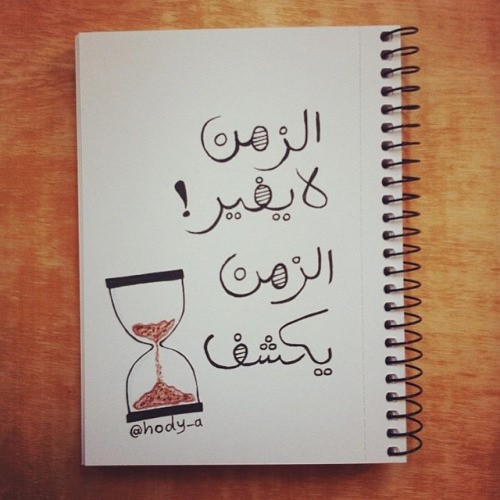 الزمن
لا يغير!
الزمن
يكشف
@hody_a